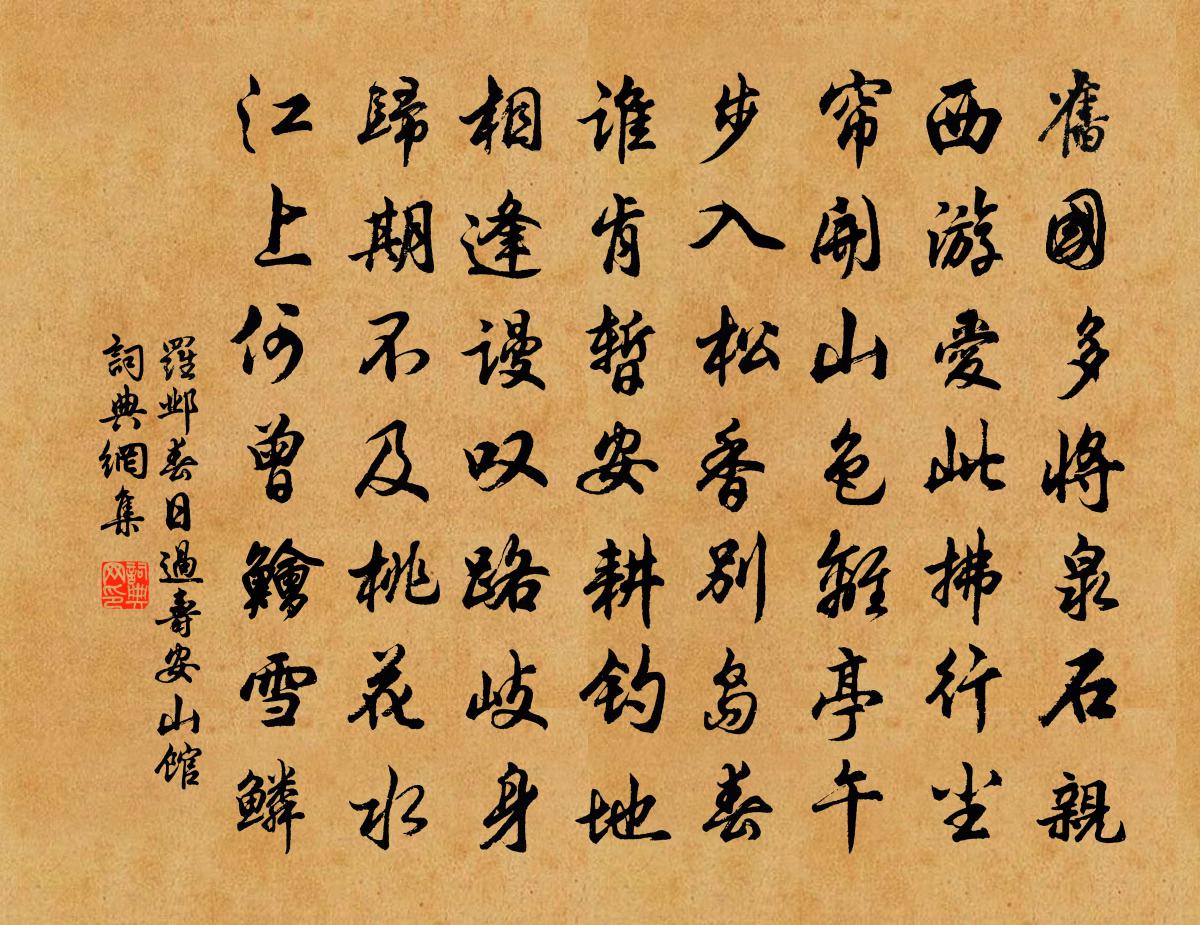 舊國多將泉石親
西游愛此拂行尘
帘開山色離亭午
步入松香別島春
誰肯暫安耕釣地
相逢謾叹路岐身
歸期不及桃花水
江上何曾鱠雪鱗
羅邺春日過壽安山館
詞典網集
詞典网印